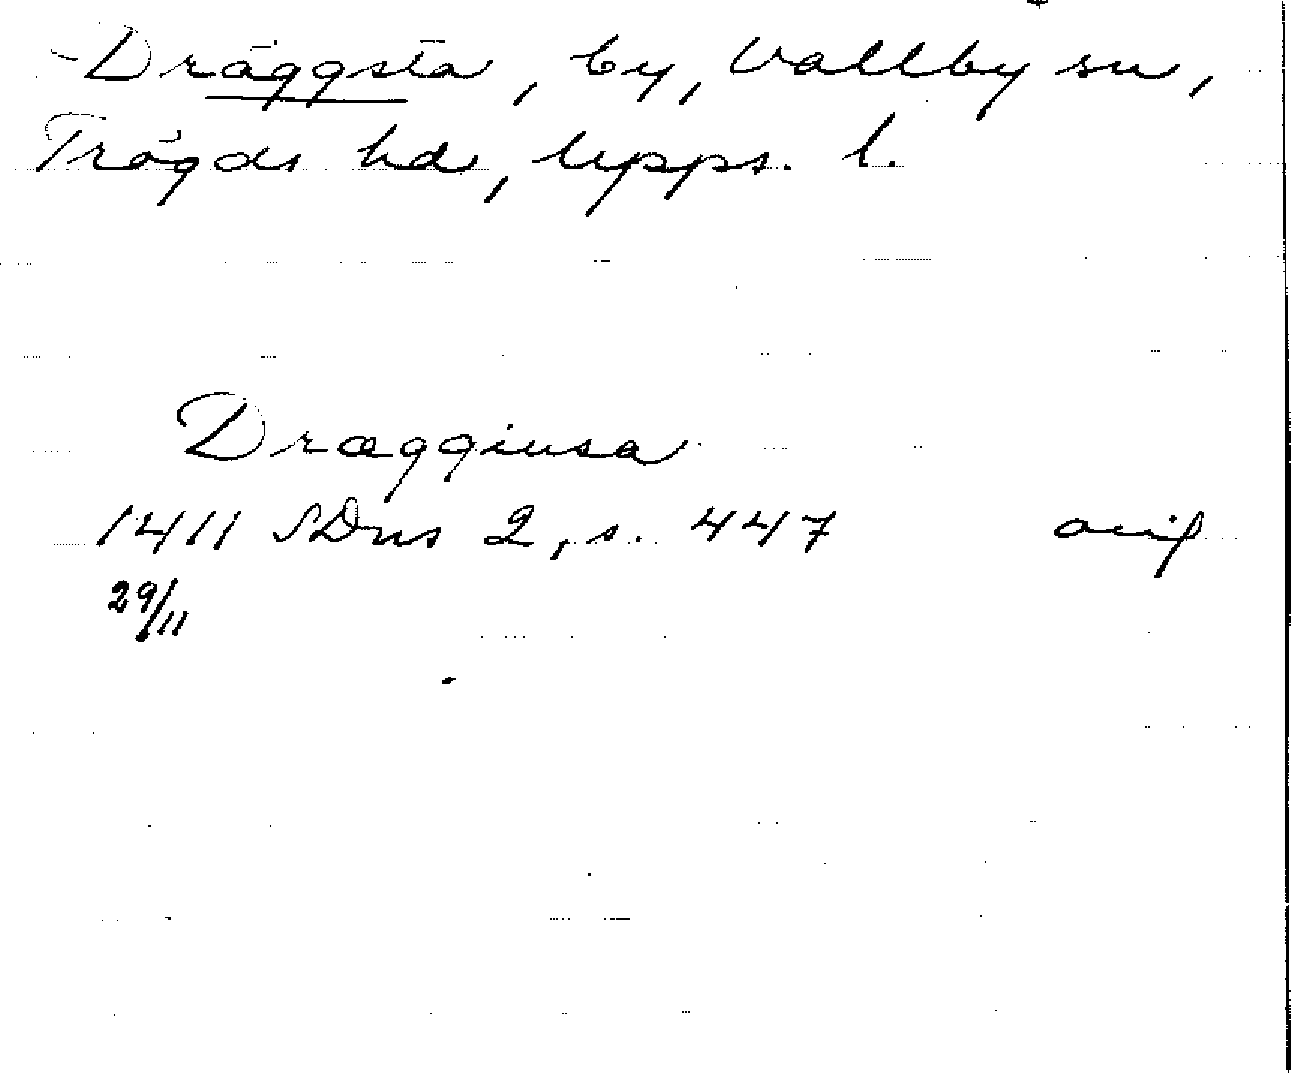 Dräggsta, by, Vallby sn,
Trögds hd, Upps. l.
Dræggiusa
1411 SDns 2, s. 447 orig
29/11